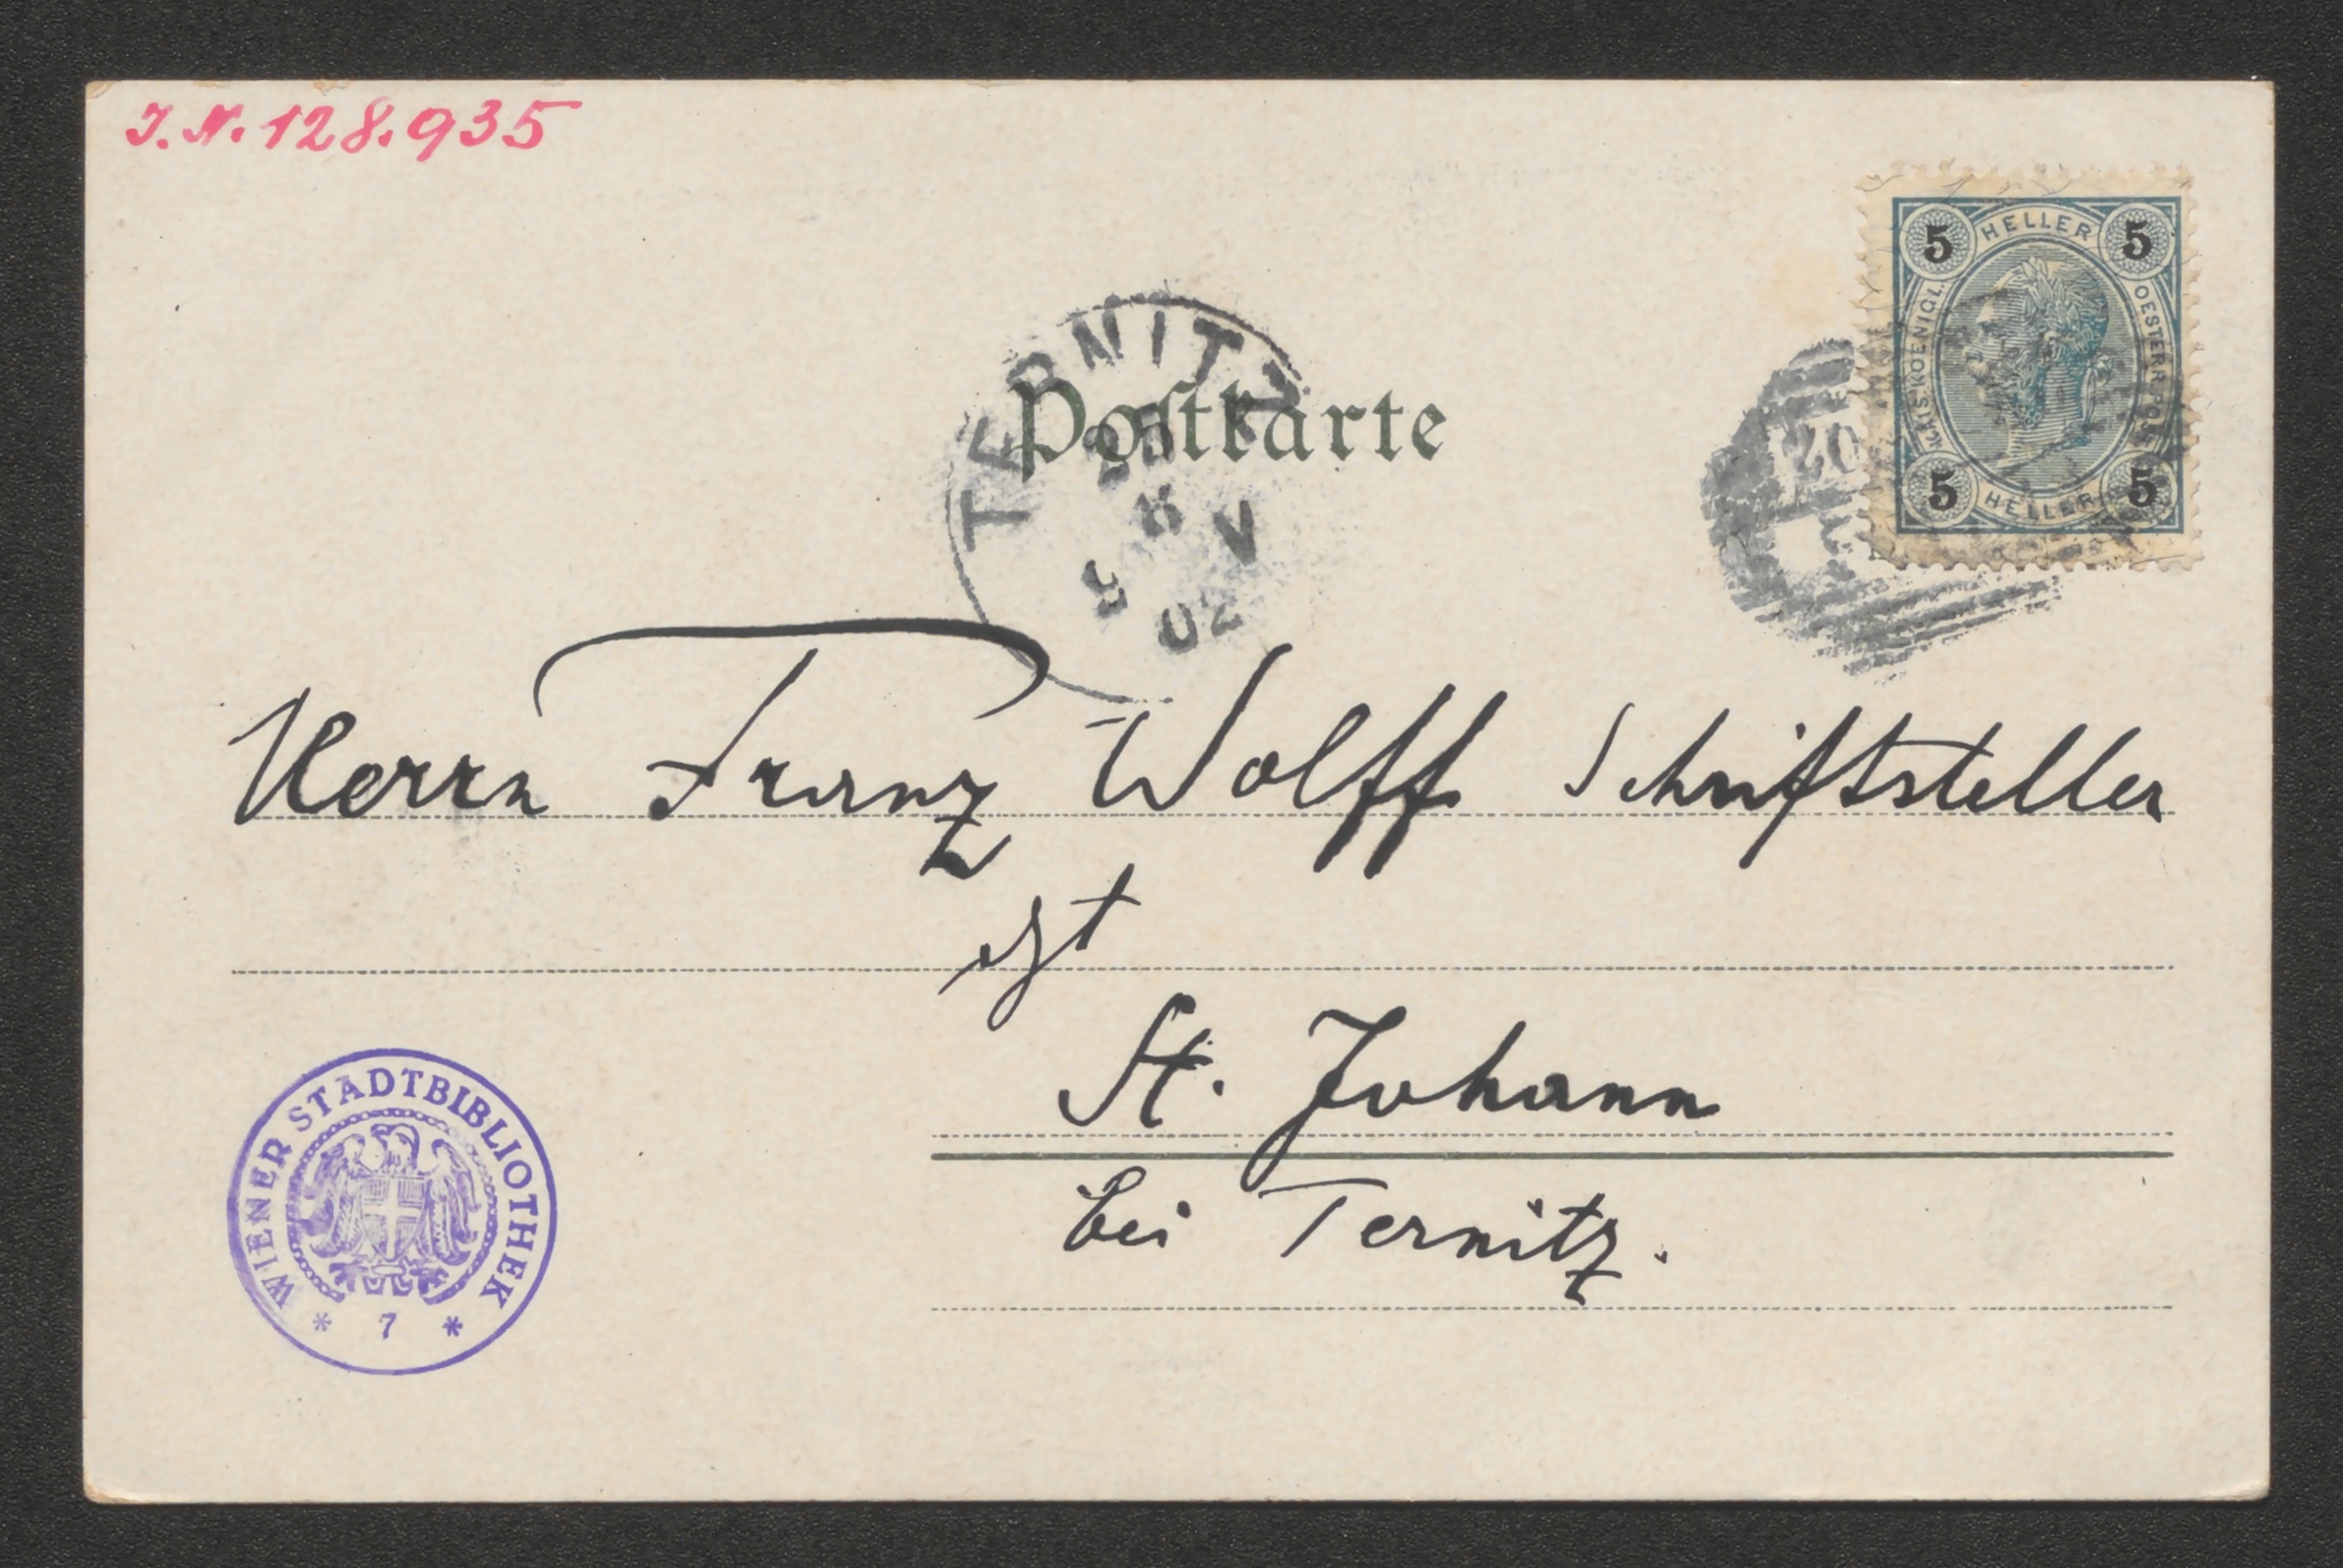 J.N. 128.935
5 HELLER 5
KAIS. KOENIGL. OESTERR. POST
5 HELLER 5
TERNITZ
Postkarte
02
20
Herrn Franz Wolff Schriftsteller
izt
St. Johann
bei Ternitz.
WIENER STADTBIBLIOTHEK
* 7 *